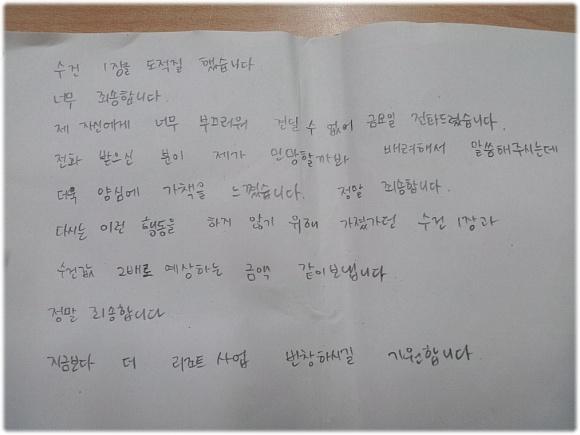 수건 1장을 도적질 했습니다
너무 죄송합니다.
제 자신에게 너무 부끄러워 견딜 수 없어 금요일 전화드렸습니다.
전화 받으신 분이 제가 민망할까봐 배려해서 말씀해주시는데
더욱 양심에 가책을 느꼈습니다. 정말 죄송합니다.
다시는 이런 행동을 하지 않기 위해 가졌가던 수건 1장과
수건값 2배로 예상하는 금액 같이보냅니다
정말 죄송합니다
지금보다 더 리조트 사업 번창하시길 기원합니다.